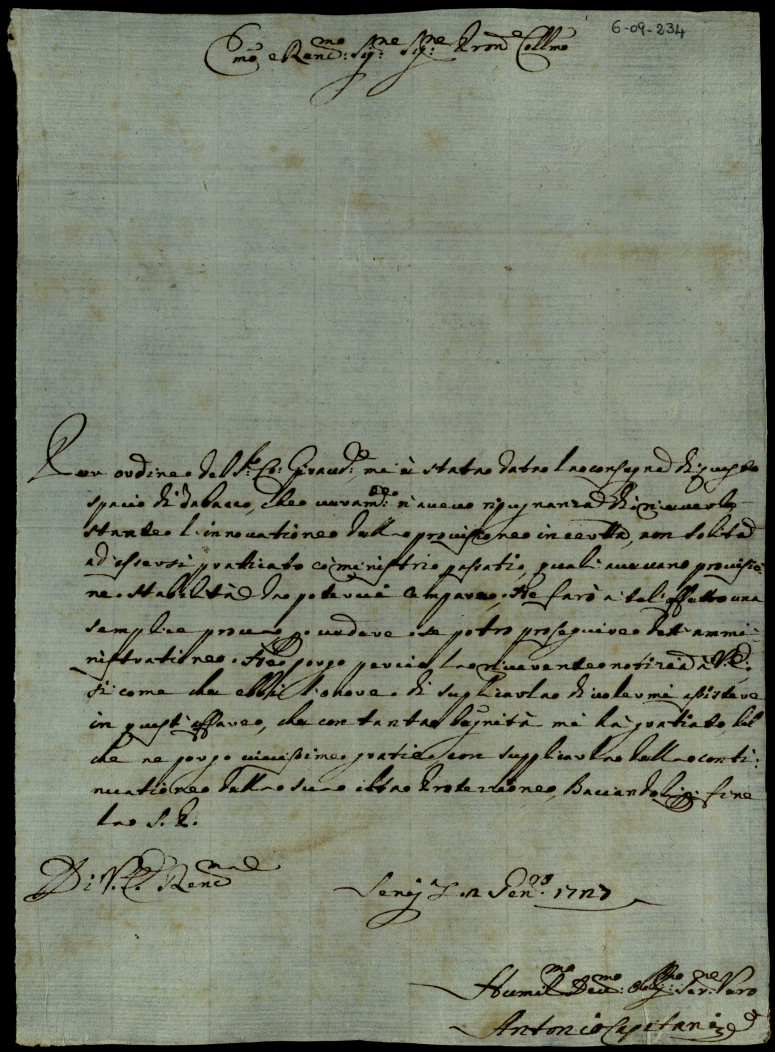 6-09-234
Emo, e Revd:mo Sig:re Sig:re Prone Collmo
Per ordine del Sr: Co: Giraud, mi è stata data la consegna di questo
spacio di Tabacco, che veram:te vi avevo ripugnanza di riceverlo
stante l'innovatione della provisione incerta, non solita
ad essersi praticato co ministri passati, quali avevano provisio=
ne stabilita da potervi campare. Ne farò a tal effetto una
semplice prova p vedere se potrò proseguire detta ammi=
nistratione. Ne porgo perciò la riverente notizia à V.E.
si come che ebbi l'onore di supplicarla di volermi assistere
in questi affare, che con tanta begnità mi ha gratiato, del
che ne porgo vivissime gratie con supplicarla della conti:
nuatione della sua alta Protezione, Baciandoli p: fine
la S. P.
Di V. E. Revd:ma
Li 12 Gen:ro 1727
Humil:mo Dev:mo Obb:mo Ser:re Vero
Antonio Capitani